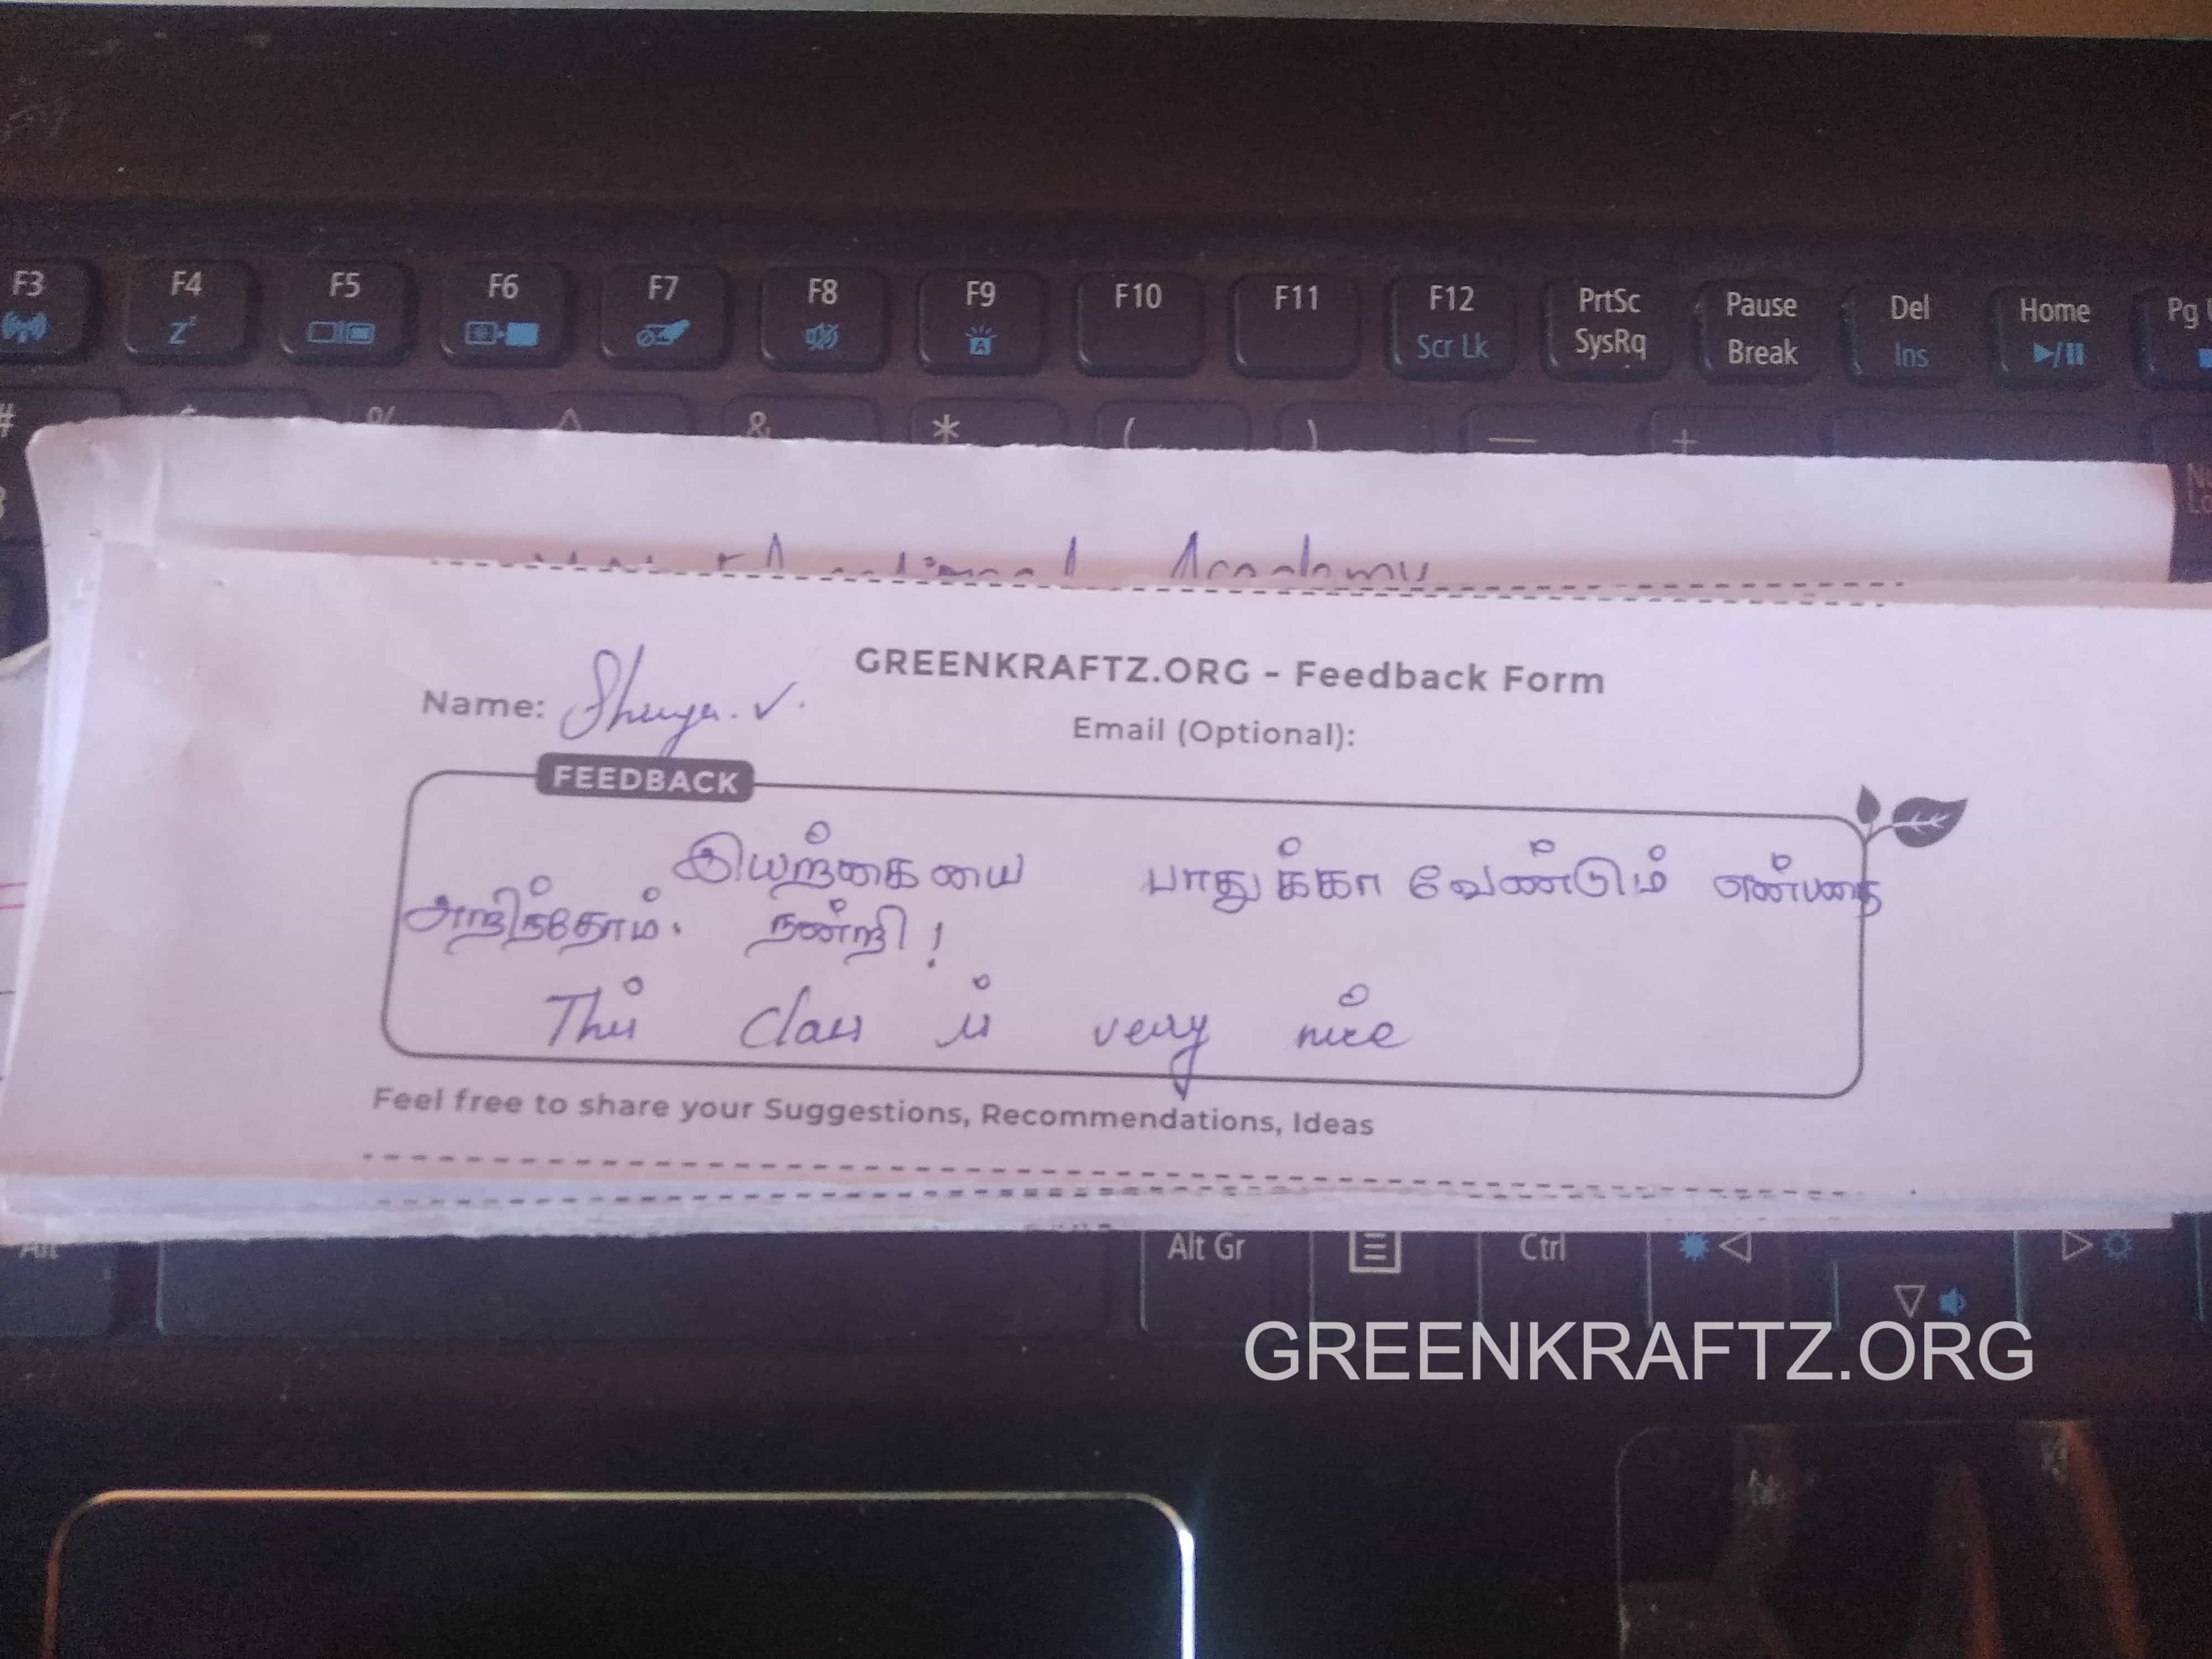 F3 F4 F5 F6 F7 F8 F9 F10 F11 F12 PrtSc Pause Del Home Pg
Z Scr Lk SysRq Break Ins
# % ^ & * ( ) — +
Academy
GREENKRAFTZ.ORG - Feedback Form
Name:
Email (Optional):
FEEDBACK
இயற்கையை பாதுக்கா வேண்டும் என்பதை
அறிந்தோம். நன்றி!
This class is very nice
Feel free to share your Suggestions, Recommendations, Ideas
Alt Alt Gr Ctrl
GREENKRAFTZ.ORG